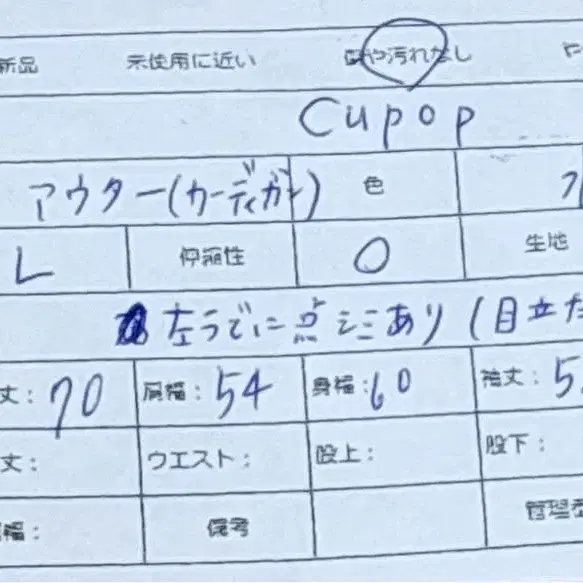 新品 未使用に近い 傷や汚れなし
Cupop
アウター(カーディガン) 色
L 伸縮性 〇 生地
左うでに点シミあり(目立た
丈: 70 肩幅: 54 身幅: 60 袖丈: 5
丈: ウエスト: 股上: 股下:
幅: 備考 管理番